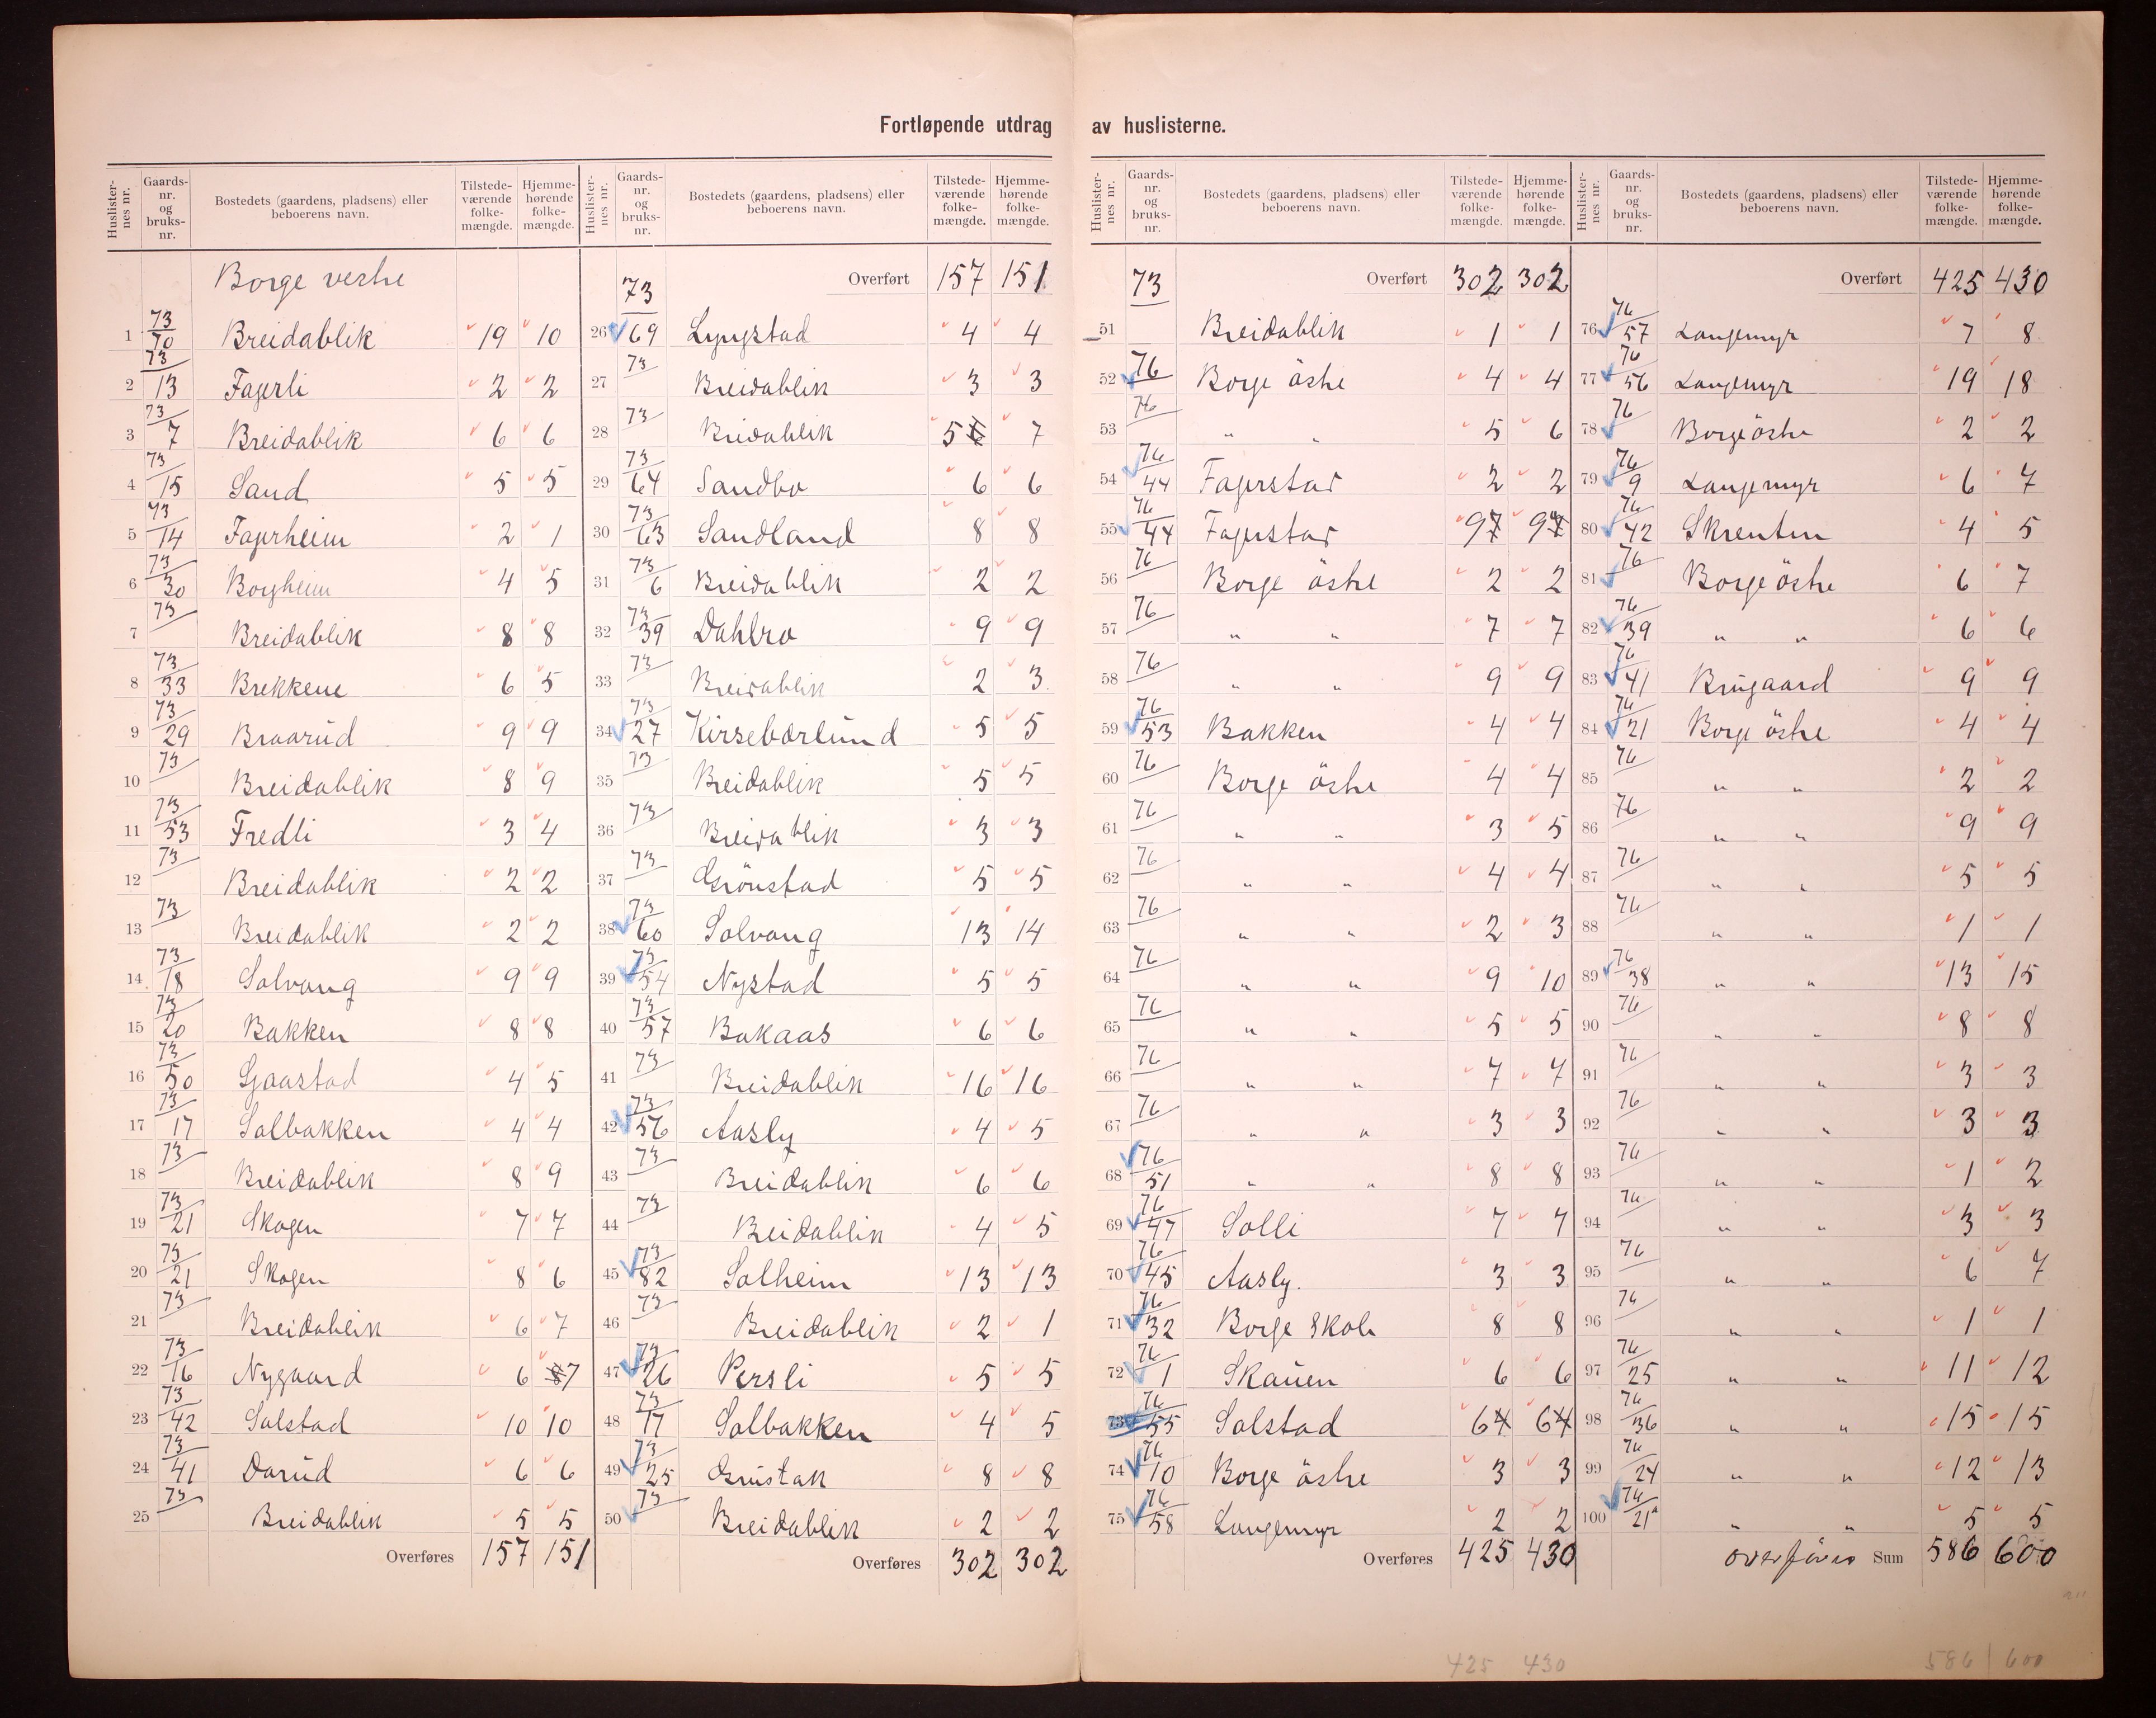 Fortløpende utdrag av huslisterne.
Huslister-nes nr. Gaards-nr. og bruks-nr. Bostedets (gaardens, pladsens) eller beboerens navn. Tilstede-værende folke-mængde. Hjemme-hørende folke-mængde.
Borge vestre
1 73/70 Breidablik 19 10
2 73/13 Fagerli 2 2
3 73/7 Breidablik 6 6
4 73/15 Sand 5 5
5 73/14 Fagerheim 2 1
6 73/30 Borgheim 4 5
7 73 Breidablik 8 8
8 73/33 Brekkene 6 5
9 73/29 Braarud 9 9
10 73 Breidablik 8 9
11 73/53 Fredli 3 4
12 73 Breidablik 2 2
13 73 Breidablik 2 2
14 73/18 Solvang 9 9
15 73/20 Bakken 8 8
16 73/50 Gaastad 4 5
17 73/17 Solbakken 4 4
18 73 Breidablik 8 9
19 73/21 Skogen 7 7
20 73/21 Skogen 8 6
21 73 Breidablik 6 7
22 73/16 Nygaard 6 7
23 73/42 Solstad 10 10
24 73/41 Darud 6 6
25 73 Breidablik 5 5
Overføres 157 151
Huslister-nes nr. Gaards-nr. og bruks-nr. Bostedets (gaardens, pladsens) eller beboerens navn. Tilstede-værende folke-mængde. Hjemme-hørende folke-mængde.
73 Overført 157 151
26 69 Lyngstad 4 4
27 73 Breidablik 3 3
28 73 Breidablik 5 7
29 73/64 Sandbo 6 6
30 73/63 Sandland 8 8
31 73/6 Breidablik 2 2
32 73/39 Dahlro 9 9
33 73 Breidablik 2 3
34 73/27 Kirsebærlund 5 5
35 73 Breidablik 5 5
36 73 Breidablik 3 3
37 73 Grönstad 5 5
38 73/60 Solvang 13 14
39 73/54 Nystad 5 5
40 73/57 Bakaas 6 6
41 73 Breidablik 16 16
42 73/56 Aasly 4 5
43 73 Breidablik 6 6
44 73 Breidablik 4 5
45 73/82 Solheim 13 13
46 73 Breidablik 2 1
47 73/26 Persli 5 5
48 73/17 Solbakken 4 5
49 73/25 Grustak 8 8
50 73 Breidablik 2 2
Overføres 302 302
Huslister-nes nr. Gaards-nr. og bruks-nr. Bostedets (gaardens, pladsens) eller beboerens navn. Tilstede-værende folke-mængde. Hjemme-hørende folke-mængde.
73 Overført 302 302
51 Breidablik 1 1
52 76 Borge östre 4 4
53 76 " " 5 6
54 76/44 Fagerstad 2 2
55 76/44 Fagerstad 9 9
56 76 Borge östre 2 2
57 76 " " 7 7
58 76 " " 9 9
59 76/53 Bakken 4 4
60 76 Borge östre 4 4
61 76 " " 3 5
62 76 " " 4 4
63 76 " " 2 3
64 76 " " 9 10
65 76 " " 5 5
66 76 " " 7 7
67 76 " " 3 3
68 76/51 " " 8 8
69 76/47 Solli 7 7
70 76/45 Aasly. 3 3
71 76/32 Borge Skole 8 8
72 76/1 Skauen 6 6
73 76/55 Solstad 6 6
74 76/10 Borge östre 3 3
75 76/58 Langemyr 2 2
Overføres 425 430
Huslister-nes nr. Gaards-nr. og bruks-nr. Bostedets (gaardens, pladsens) eller beboerens navn. Tilstede-værende folke-mængde. Hjemme-hørende folke-mængde.
Overført 425 430
76 76/57 Langemyr 7 8
77 76/56 Langemyr 19 18
78 76 Borge östre 2 2
79 76/9 Langemyr 6 7
80 76/42 Skrenten 4 5
81 76 Borge östre 6 7
82 76/39 " " 6 6
83 76/41 Brugaard 9 9
84 76/21 Borge östre 4 4
85 76 " " 2 2
86 76 " " 9 9
87 76 " " 5 5
88 76 " " 1 1
89 76/38 " " 13 15
90 76 " " 8 8
91 76 " " 3 3
92 76 " " 3 3
93 76 " " 1 2
94 76 " " 3 3
95 76 " " 6 7
96 76 " " 1 1
97 76/25 " " 11 12
98 76/36 " " 15 15
99 76/24 " " 12 13
100 76/21a " " 5 5
overføres Sum 586 600
425 430
586 600